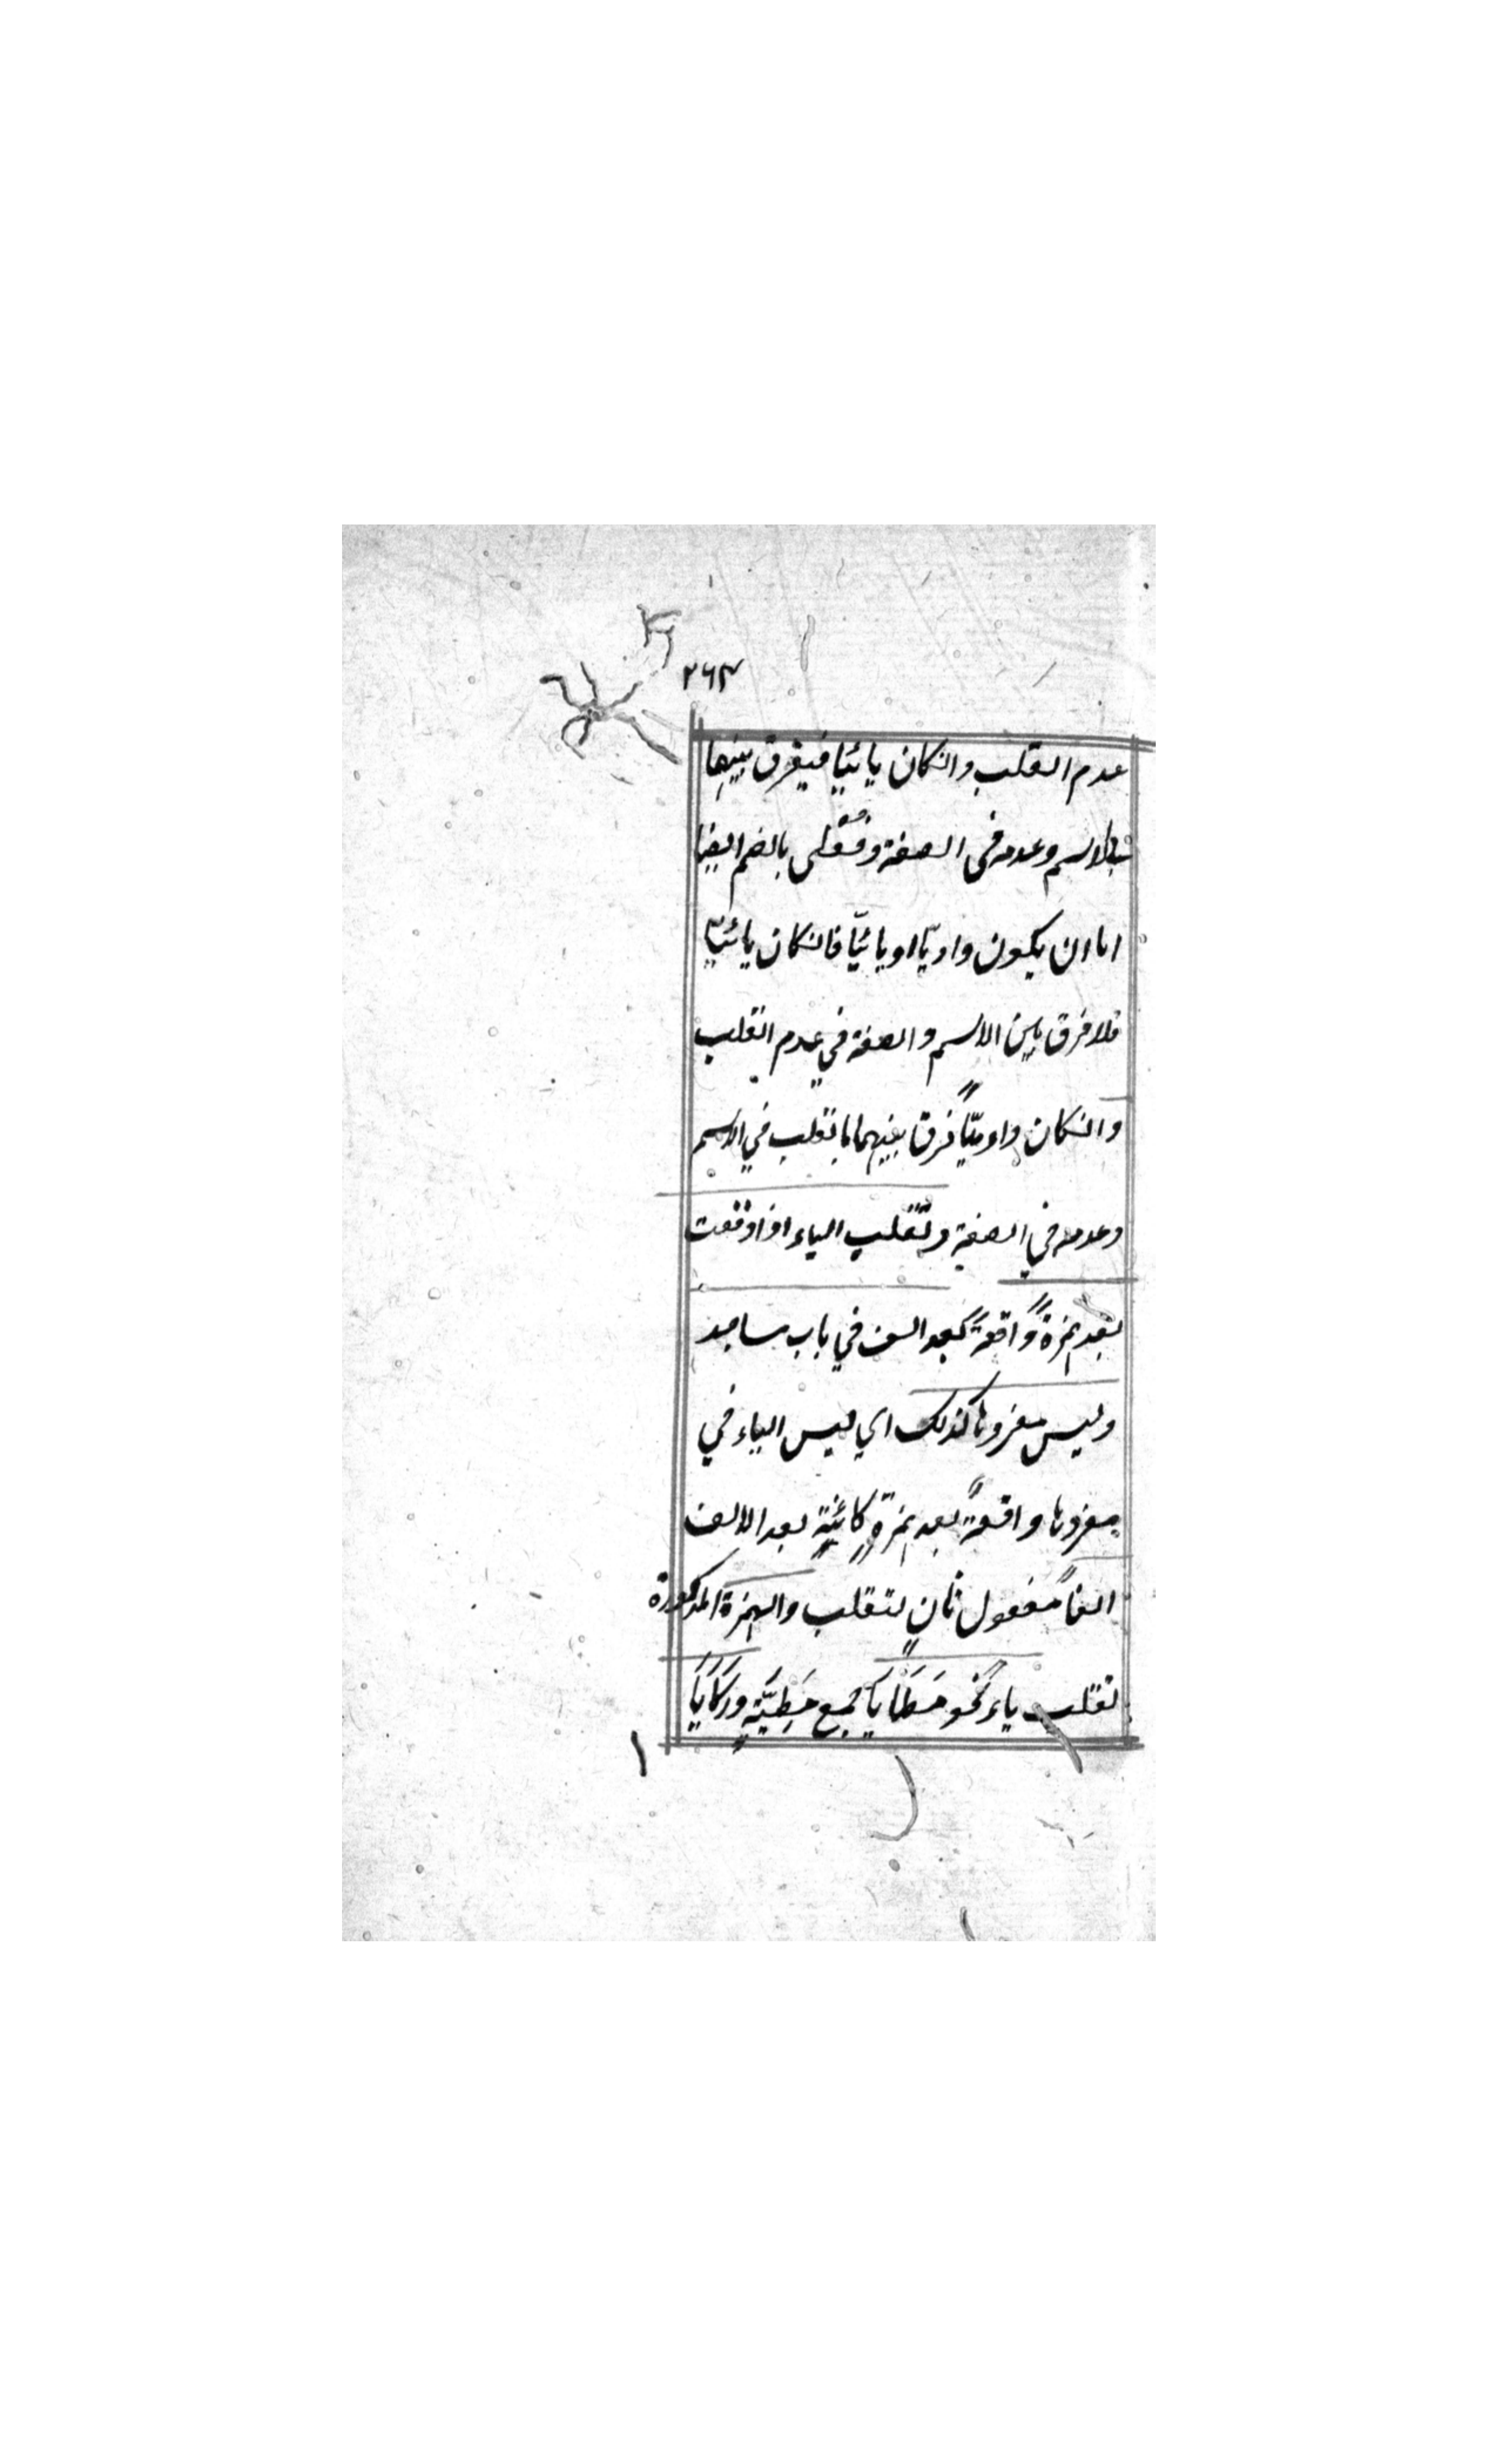 ٢٦٣
عدم القلب وانكان يائيا فيفرق بينهما
بالاسم وعدمه فى الصفة وفُعْلى بالضم ايضا
اما ان يكون واويّا او يائيّا فانكان يائيّا
فلا فرق بين الاسم والصفة في عدم القلب
وانكان واويّاً فرق بينهما بالقلب في الاسم
وعدمه في الصفة وتُقلب الياء اذا وقعت
بعد همزة واقعةً بعد الف في باب مساجد
وليس مفردها كذلك اي ليس الياء في
مفردها واقعةً بعد همزةٍ كائنةٍ بعد الالف
الفاً مفعول ثانٍ لتقلب والهمزة المذكورة
تقلب ياء نحو خَطَايَا جمع خَطِيَّةٍ ورَكَايَا